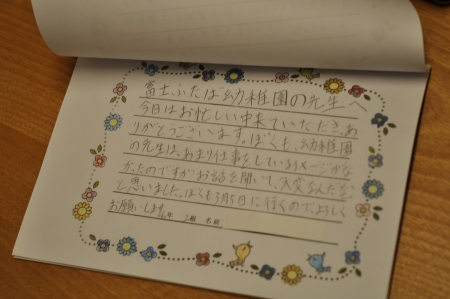 富士ふたば幼稚園の先生へ
今日はお忙しい中来ていただき、あ
りがとうございます。ぼくも、幼稚園
の先生は、あまり仕事をしているイメージがな
かったのですがお話を聞いて、大変なんだな
と思いました。ぼくも3月5日に行くので、よろしく
お願いします。
年 2組 名前